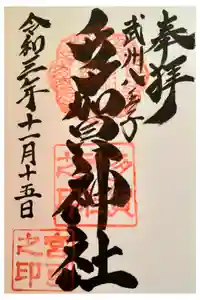 奉拝
武州八王子
多賀神社
令和三年十一月十五日
宮司
之印